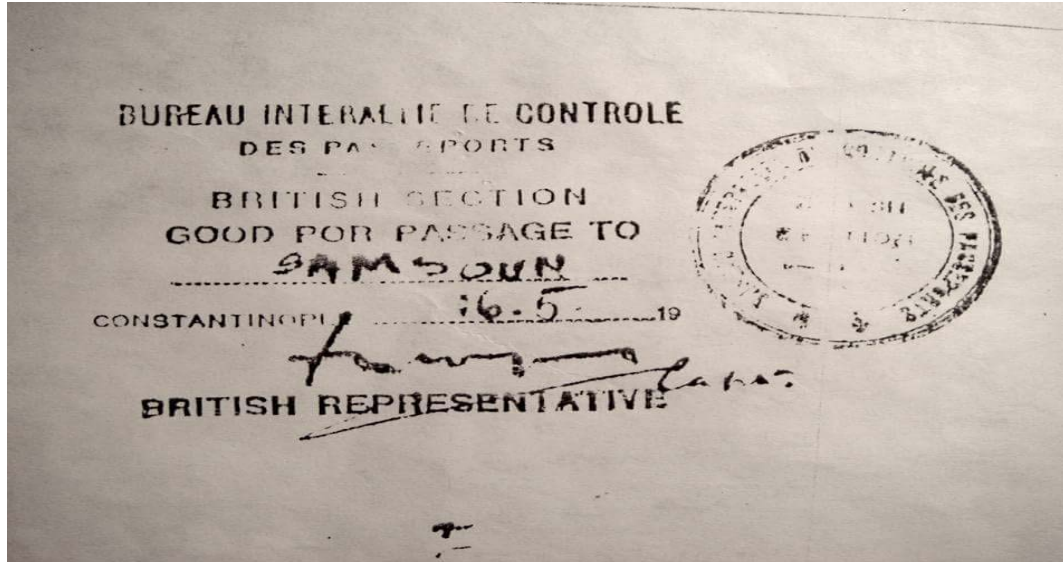 BUREAU INTERALLIE DE CONTROLE
DES PASSEPORTS
BRITISH SECTION
GOOD FOR PASSAGE TO
SAMSOUN
CONSTANTINOPLE 16.5 19
BRITISH REPRESENTATIVE